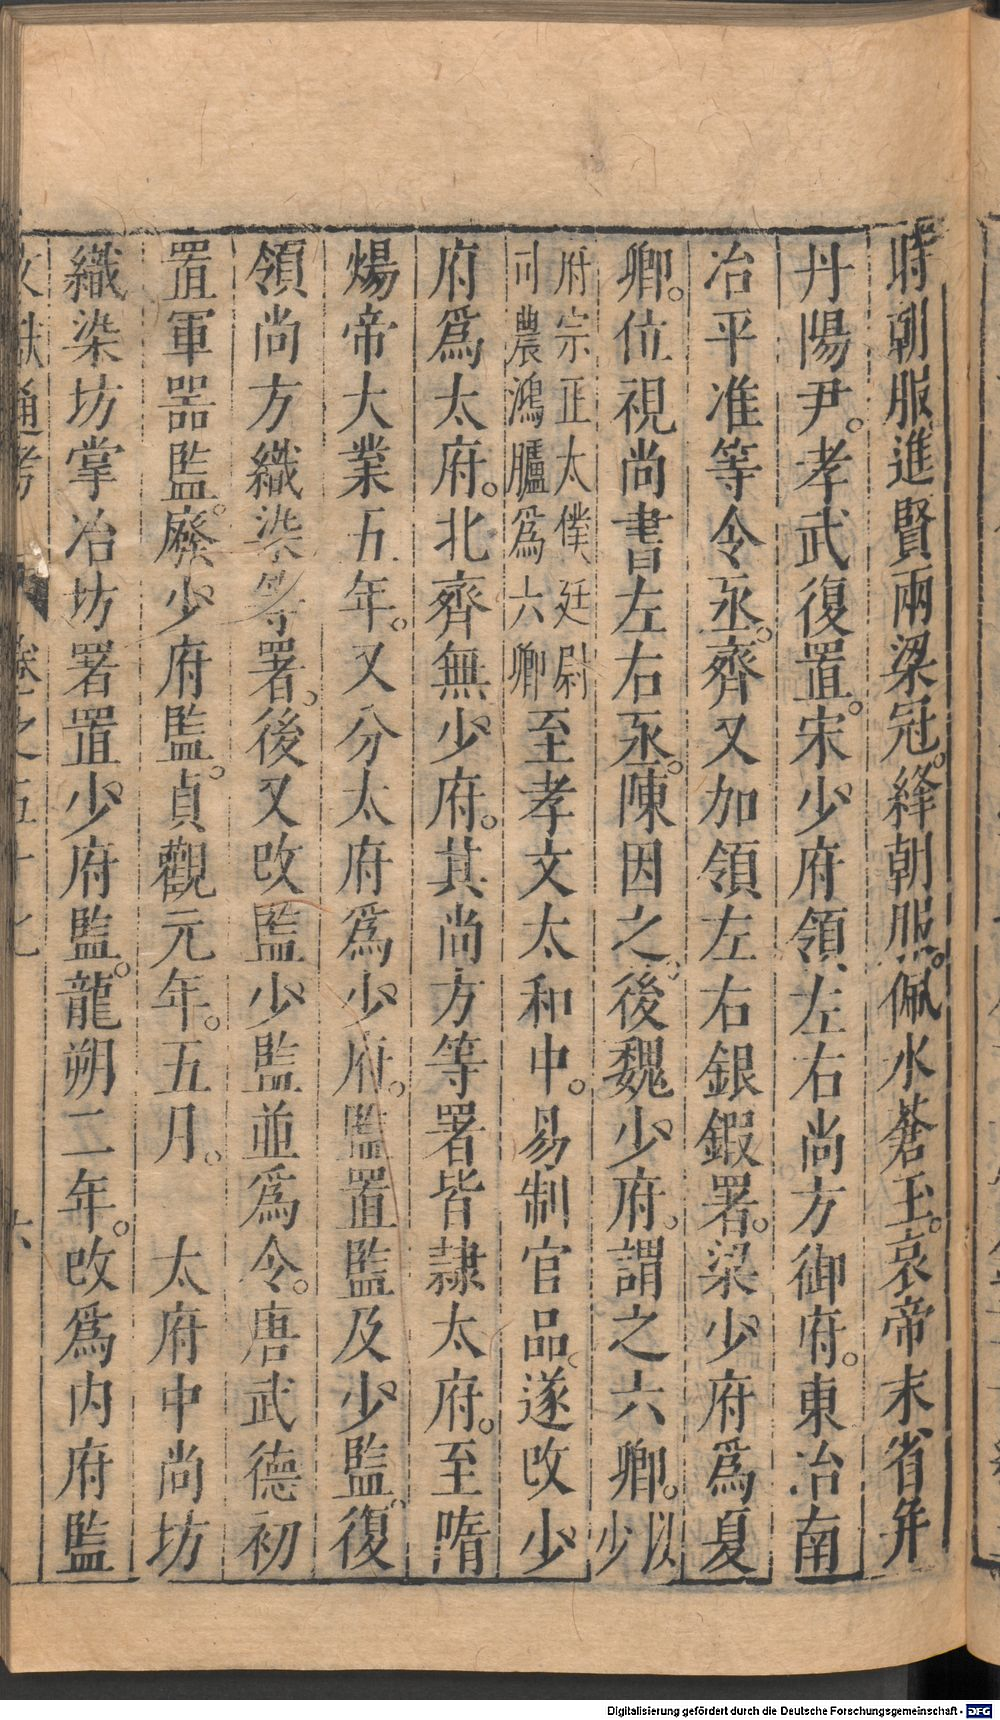 時朝服進賢兩梁冠。絳朝服。佩水蒼玉。哀帝末省并
丹陽尹。孝武復置。宋少府領左右尚方御府。東冶南
冶平准等令丞。齊又加領左右銀鍜署。梁少府為夏
卿。位視尚書左右丞。陳因之。後魏少府。謂之六卿。以少
府宗正太僕廷尉
司農鴻臚為六卿
至孝文太和中。易制官品。遂改少
府為太府。北齊無少府。其尚方等署皆隷太府。至隋
煬帝大業五年。又分太府為少府。監置監及少監。復
領尚方織染等署。後又改監少監並為令。唐武德初
置軍器監。廢少府監。貞觀元年。五月。 太府中尚坊
織染坊掌冶坊署置少府監。龍朔二年。改為內府監
文獻通考 卷之五十七 六
Digitalisierung gefördert durch die Deutsche Forschungsgemeinschaft - DFG